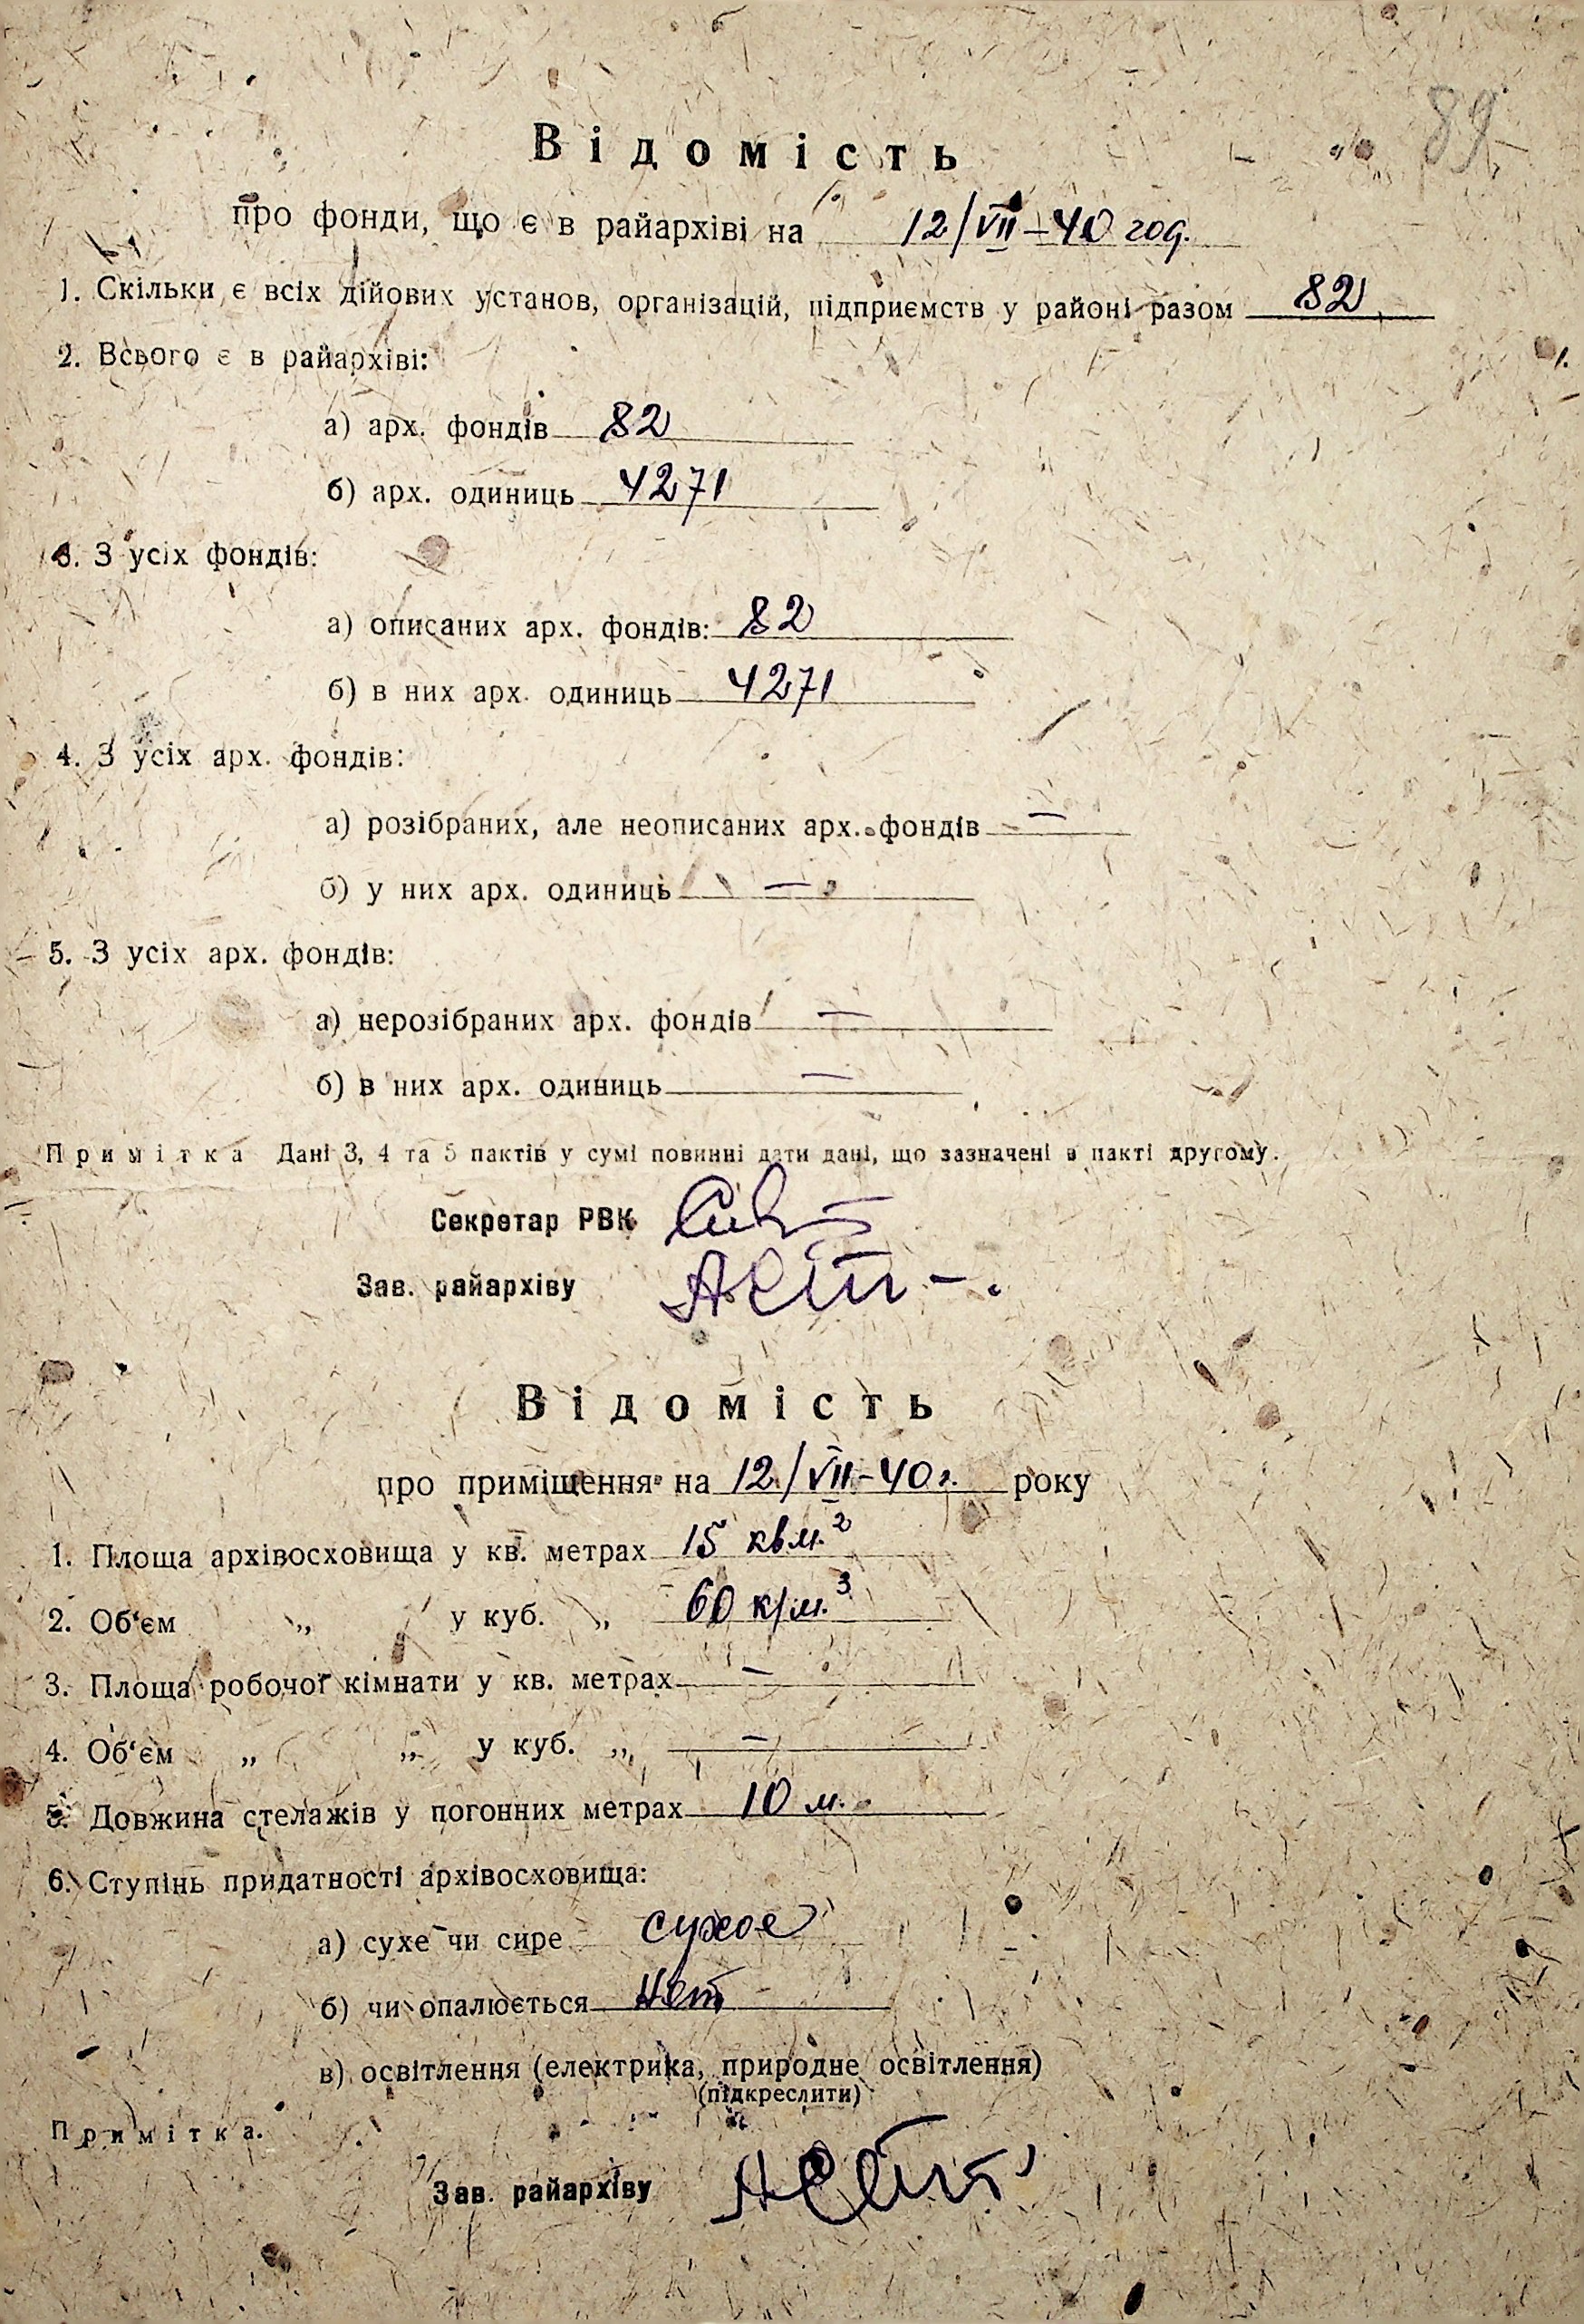 89
Відомість
про фонди, що є в райархіві на 12/VII-40 год.
1. Скільки є всіх дійових установ, організацій, підприємств у районі разом 82
2. Всього є в райархіві:
а) арх. фондів 82
б) арх. одиниць 4271
3. З усіх фондів:
а) описаних арх. фондів: 82
б) в них арх. одиниць 4271
4. З усіх арх. фондів:
а) розібраних, але неописаних арх. фондів —
б) у них арх. одиниць —
5. З усіх арх. фондів:
а) нерозібраних арх. фондів —
б) в них арх. одиниць —
Примітка Дані 3, 4 та 5 пактів у сумі повинні дати дані, що зазначені в пакті другому.
Секретар РВК
Зав. райархіву
Відомість
про приміщення на 12/VII-40 г. року
1. Площа архівосховища у кв. метрах 15 кв.м.²
2. Об‘єм „ у куб. „ 60 к/м.³
3. Площа робочої кімнати у кв. метрах —
4. Об‘єм „ „ у куб. „ —
5. Довжина стелажів у погонних метрах 10 м.
6. Ступінь придатності архівосховища:
а) сухе чи сире сухое
б) чи опалюється Нет
в) освітлення (електрика, природне освітлення)
(підкреслити)
Примітка.
Зав. райархіву